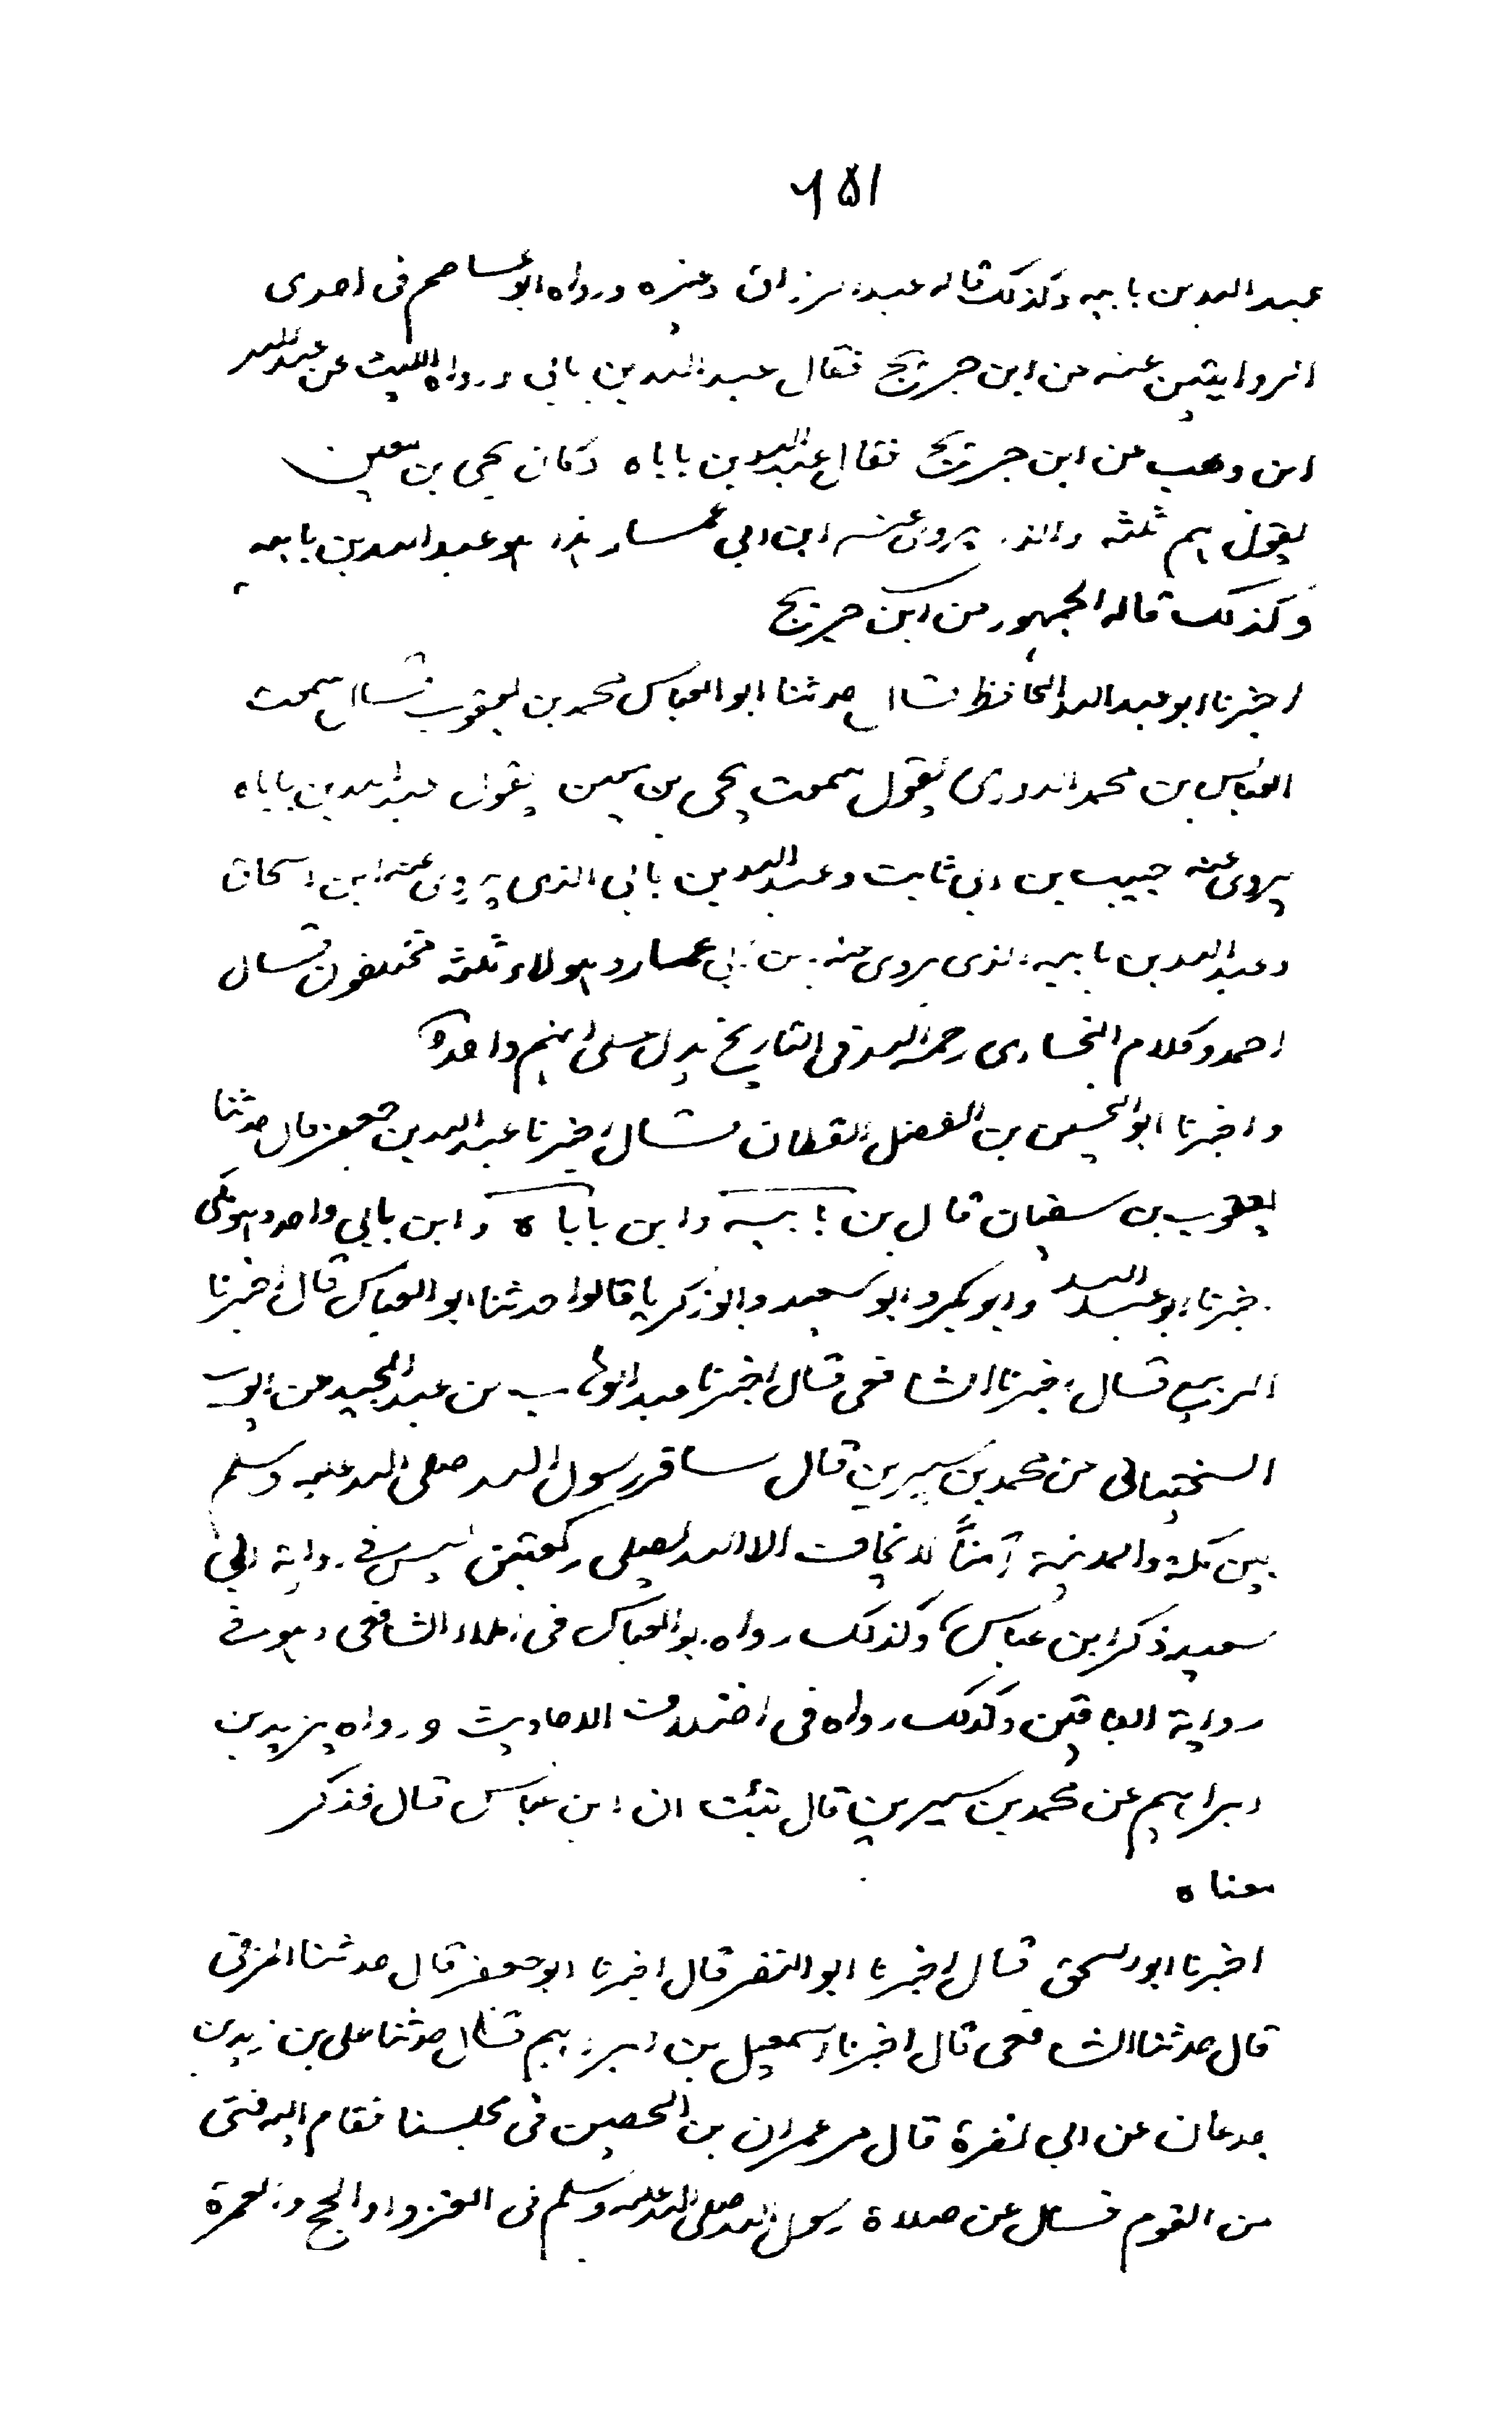 ۶۵۱
عبد الله بن بابيه وكذلك قاله عبد الرزاق وغيره ورواه ابو عاصم فى احدى
الروايتين عنه عن ابن جريج فقال عبد الله بن بابى ورواه الليث عن عبد الله
ابن وهب عن ابن جريج فقال عبد الله بن باباه وكان يحيى بن معين
يقول هم ثلثه والذى يروى عنه ابن ابى عمار هذا هو عبد الله بن بابيه
وكذلك قاله الجمهور عن ابن جريج
اخبرنا ابو عبد الله الحافظ قال حدثنا ابو العباس محمد بن يعقوب قال سمعت
العباس بن محمد الدورى يقول سمعت يحيى بن معين يقول عبد الله بن باباه
يروى عنه حبيب بن ابى ثابت وعبد الله بن بابى الذى يروى عنه ابن اسحاق
وعبد الله بن بابيه الذى يروى عنه ابن ابى عمار وهولاء ثلثه مختلفون قال
احمد وكلام البخارى رحمه الله فى التاريخ يدل على انهم واحد
واخبرنا ابو الحسين بن الفضل القطان قال اخبرنا عبد الله بن جعفر قال حدثنا
يعقوب بن سفيان قال بن بابيه وابن باباه وابن بابى واحد وهو مكى
اخبرنا ابو عبد الله وابو بكر وابو سعيد وابو زكريا قالوا حدثنا ابو العباس قال اخبرنا
الربيع قال اخبرنا الشافعى قال اخبرنا عبد الوهاب بن عبد المجيد عن ايوب
السختيانى عن محمد بن سيرين قال سافر رسول الله صلى الله عليه وسلم
بين مكة والمدينة آمناً لا يخاف الا الله يصلى ركعتين ليس فى رواية ابى
سعيد ذكر ابن عباس وكذلك رواه ابو العباس فى املاء الشافعى وهو فى
رواية الباقين وكذلك رواه فى اختلاف الاحاديث ورواه يزيد بن
ابراهيم عن محمد بن سيرين قال نبئت ان ابن عباس قال فذكر
معناه
اخبرنا ابو اسحق قال اخبرنا ابو النضر قال اخبرنا ابو جعفر قال حدثنا المزنى
قال حدثنا الشافعى قال اخبرنا اسمعيل بن ابراهيم قال حدثنا على بن زيد بن
جدعان عن ابى نضرة قال مر عمران بن الحصين فى مجلسنا فقام اليه فتى
من القوم فسال عن صلاة رسول الله صلى الله عليه وسلم فى الغزو والحج والعمرة